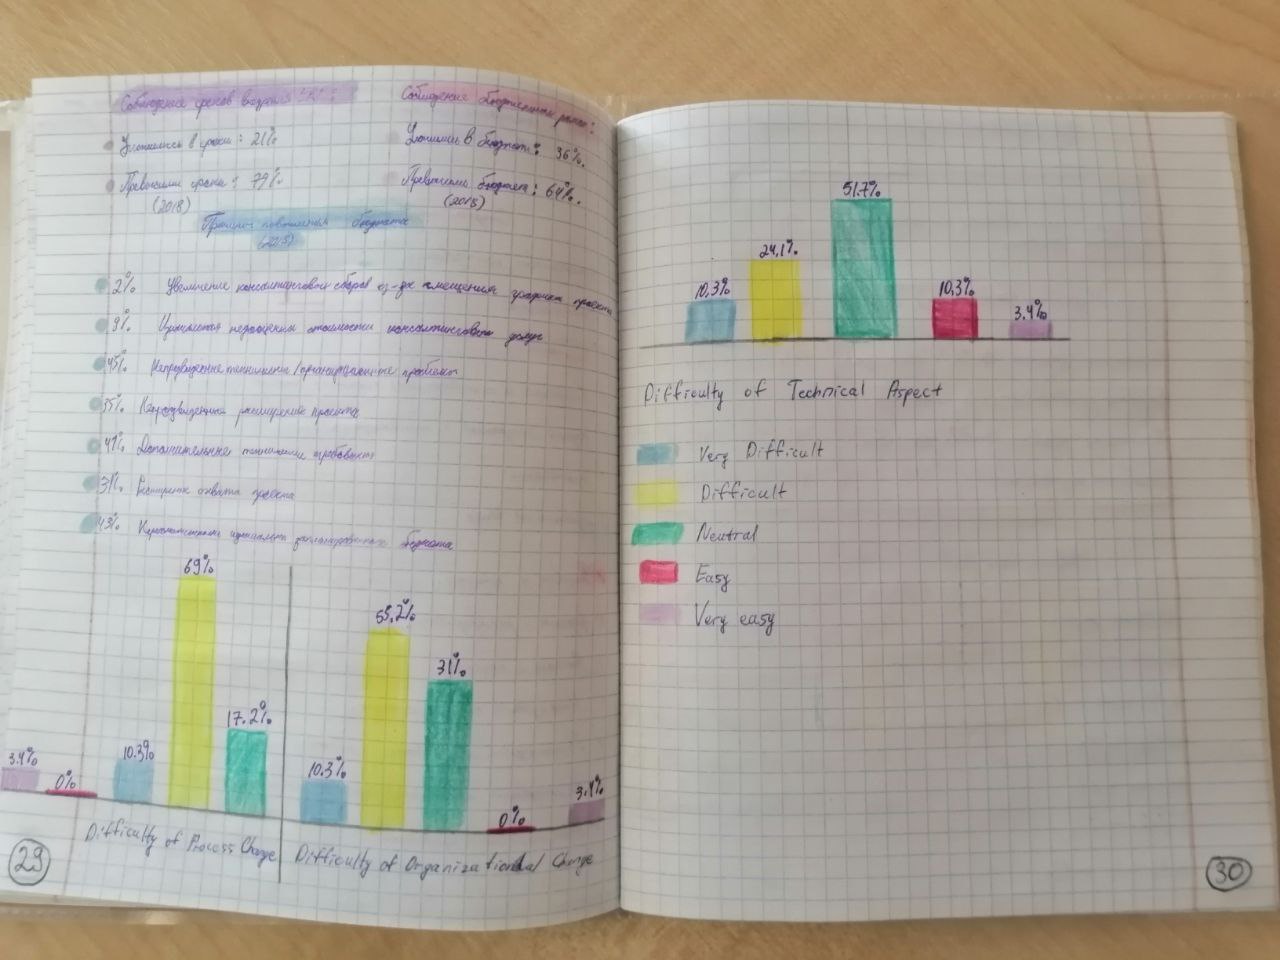 Соблюдение сроков внедрения
Уложились в сроки: 21%
Превысили сроки: 79%
(2018)
Соблюдение бюджетных рамок:
Уложились в бюджет: 36%.
Превысили бюджет: 64%.
(2015)
Причины повышения бюджета
(2015)
2% Увеличение консалтинговых сборов из-за смещения графика проекта
9% недооценка стоимости консалтинговых услуг
45% Непредвиденные технические/организационные проблемы
35% Непредвиденное расширение проекта
41% Дополнительные технические требования
31% Расширение охвата проекта
43% запланированного бюджета
3.4%
0%
10.3%
69%
17.2%
Difficulty of Process Change
10.3%
55,2%
31%
0%
3.4%
Difficulty of Organizational Change
29
10,3%
24,1%
51.7%
10,3%
3.4%
Difficulty of Technical Aspect
Very Difficult
Difficult
Neutral
Easy
Very easy
30